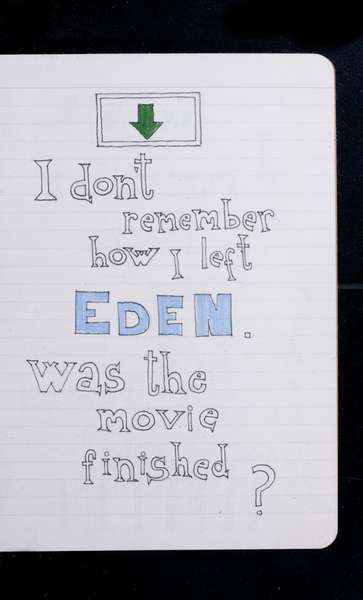 I don't
remember
how I left
EDEN.
was the
movie
finished
?